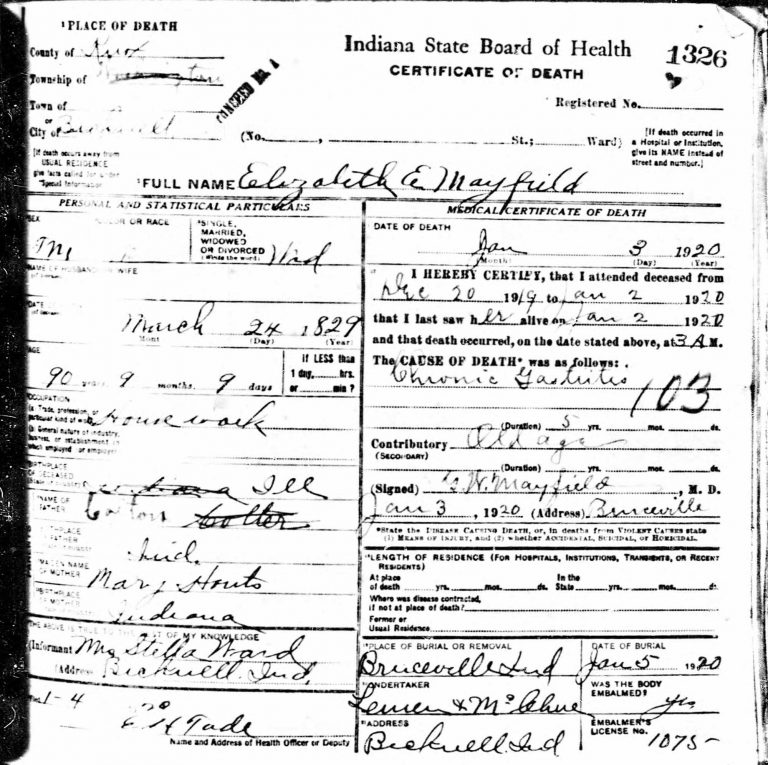 1PLACE OF DEATH
County of Knox
Township of
Town of
or
City of Bicknell
Indiana State Board of Health
CERTIFICATE OF DEATH
1326
Registered No.
(No. , St.; Ward)
[If death occurred in a Hospital or Institution, give its NAME instead of street and number.]
[If death occurs away from
USUAL RESIDENCE
give facts called for under
"Special Information"
2FULL NAME Elizabeth E Mayfield
PERSONAL AND STATISTICAL PARTICULARS
SEX
COLOR OR RACE
SINGLE,
MARRIED,
WIDOWED
OR DIVORCED
(Write the word) Wid
NAME OF HUSBAND OR WIFE
DATE
March 24 1829
Mont (Day) (Year)
AGE
If LESS than
1 day, hrs.
or min?
90 yrs. 9 months. 9 days
OCCUPATION
(a) Trade, profession, or
particular kind of work Housework
(b) General nature of industry,
business, or establishment in
which employed or employer
BIRTHPLACE
Ill
NAME OF
FATHER
Colter
BIRTHPLACE
FATHER
Ind.
MAIDEN NAME
OF MOTHER
Mary Houts
BIRTHPLACE
MOTHER
Indiana
THE ABOVE IS TRUE TO THE BEST OF MY KNOWLEDGE
(Informant Mrs Stella Ward
(Address Bicknell Ind.
1-4
E H Tade
Name and Address of Health Officer or Deputy
MEDICAL CERTIFICATE OF DEATH
DATE OF DEATH
Jan 3 1920
(Month) (Day) (Year)
I HEREBY CERTIFY, that I attended deceased from
Dec 20 1919 to Jan 2 1920
that I last saw her alive on Jan 2 1920
and that death occurred, on the date stated above, at 3 A M.
The CAUSE OF DEATH* was as follows:
Chronic Gastritis
103
(Duration) 5 yrs. mos. ds.
Contributory Old age
(SECONDARY)
(Duration) yrs. mos. ds.
(Signed) G. W. Mayfield, M. D.
Jan 3, 1920 (Address) Bruceville
*State the DISEASE CAUSING DEATH, or, in deaths from VIOLENT CAUSES state
(1) MEANS OF INJURY, and (2) whether ACCIDENTAL, SUICIDAL, or HOMICIDAL.
LENGTH OF RESIDENCE (FOR HOSPITALS, INSTITUTIONS, TRANSIENTS, OR RECENT
RESIDENTS)
At place
of death yrs. mos. ds.
In the
State yrs. mos. ds.
Where was disease contracted,
if not at place of death?
Former or
Usual Residence
PLACE OF BURIAL OR REMOVAL
Bruceville Ind
DATE OF BURIAL
Jan 5 1920
UNDERTAKER
WAS THE BODY
EMBALMED? yes
ADDRESS
Bicknell Ind
EMBALMER'S
LICENSE NO. 1075